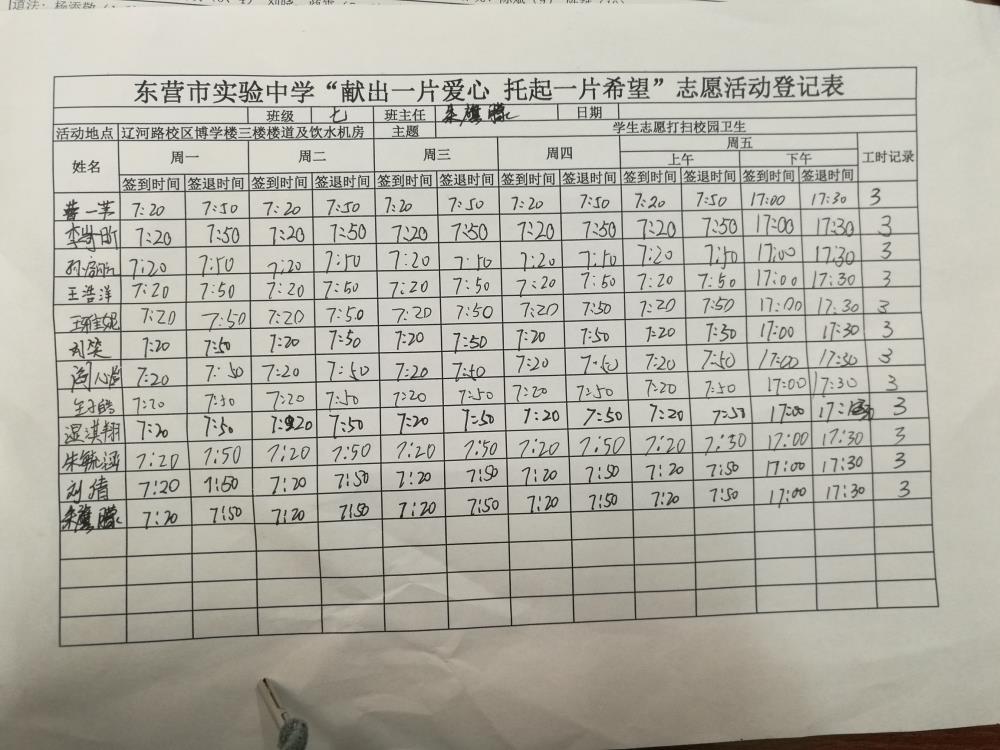 道法：杨添敬
东营市实验中学“献出一片爱心 托起一片希望”志愿活动登记表
班级 七 班主任 日期
活动地点 辽河路校区博学楼三楼楼道及饮水机房 主题 学生志愿打扫校园卫生
姓名 周一 周二 周三 周四 周五 工时记录
上午 下午
签到时间 签退时间 签到时间 签退时间 签到时间 签退时间 签到时间 签退时间 签到时间 签退时间 签到时间 签退时间
7:20 7:50 7:20 7:50 7:20 7:50 7:20 7:50 7:20 7:50 17:00 17:30 3
7:20 7:50 7:20 7:50 7:20 7:50 7:20 7:50 7:20 7:50 17:00 17:30 3
7:20 7:50 7:20 7:50 7:20 7:50 7:20 7:50 7:20 7:50 17:00 17:30 3
王浩洋 7:20 7:50 7:20 7:50 7:20 7:50 7:20 7:50 7:20 7:50 17:00 17:30 3
王雅妮 7:20 7:50 7:20 7:50 7:20 7:50 7:20 7:50 7:20 7:50 17:00 17:30 3
刘笑 7:20 7:50 7:20 7:50 7:20 7:50 7:20 7:50 7:20 7:30 17:00 17:30 3
7:20 7:50 7:20 7:50 7:20 7:50 7:20 7:50 7:20 7:50 17:00 17:30 3
7:20 7:50 7:20 7:50 7:20 7:50 7:20 7:50 7:20 7:50 17:00 17:30 3
湿淇翔 7:20 7:50 7:20 7:50 7:20 7:50 7:20 7:50 7:20 7:50 17:00 3
朱毓涵 7:20 7:50 7:20 7:50 7:20 7:50 7:20 7:50 7:20 7:30 17:00 17:30 3
刘倩 7:20 7:50 7:20 7:50 7:20 7:50 7:20 7:50 7:20 7:50 17:00 17:30 3
7:20 7:50 7:20 7:50 7:20 7:50 7:20 7:50 7:20 7:50 17:00 17:30 3